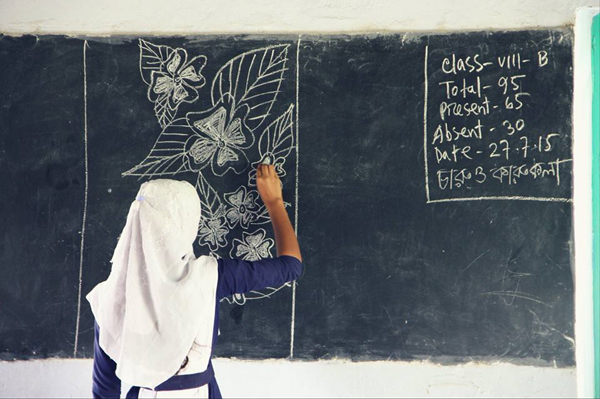 Class- VIII - B
Total - 95
Present - 65
Absent - 30
Date - 27.7.15
চারু ও কারুকলা